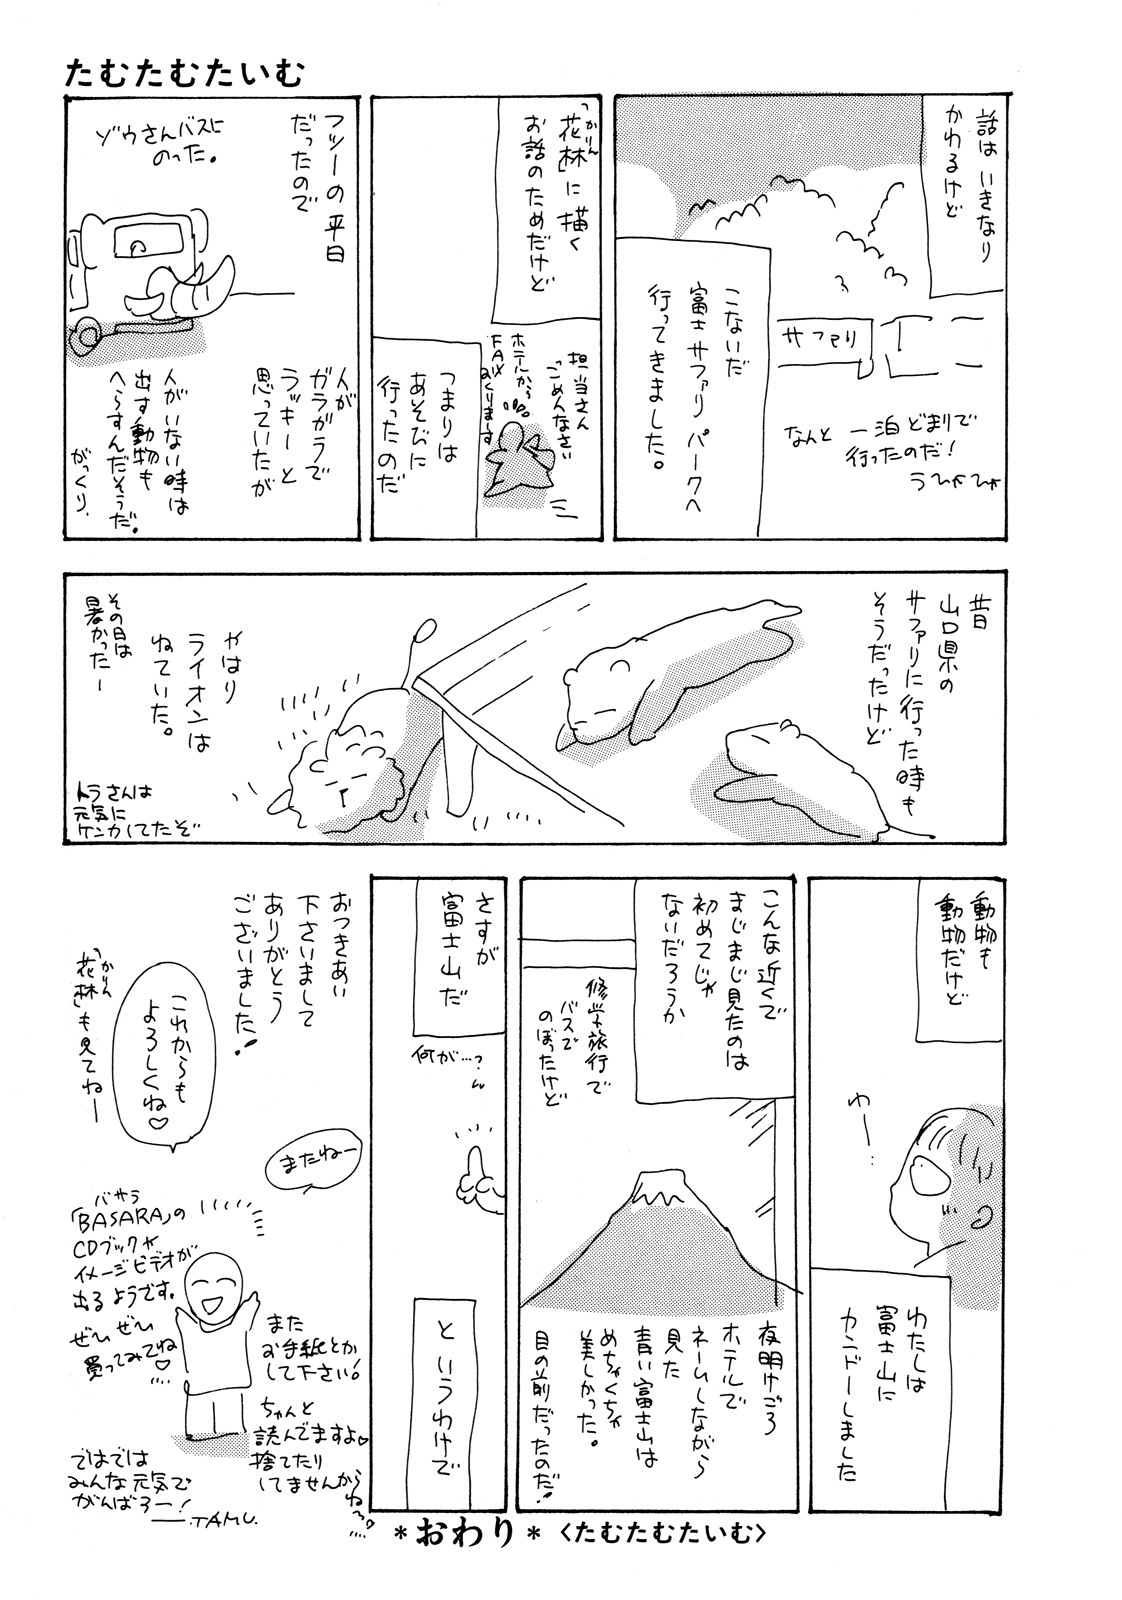 たむたむたいむ
話は いきなり
かわるけど
こないだ
富士サファリパークへ
行ってきました。
サファリ
なんと 一泊どまりで
行ったのだ!
うひゃひゃ
「花林」に描く
かりん
お話のためだけど
担当さん
ごめんなさい
ホテルから
FAXおくります
つまりは
あそびに
行ったのだ
フツーの平日
だったので
ゾウさんバスに
のった。
人が
ガラガラで
ラッキーと
思っていたが
人がいない時は
出す動物も
へらすんだそうだ。
がっくり.
昔
山口県の
サファリに行った時も
そうだったけど
やはり
ライオンは
ねていた。
その日は
暑かったー
トラさんは
元気に
ケンカしてたぞ
動物も
動物だけど
わー…
わたしは
富士山に
カンドーしました
こんな近くで
まじまじ見たのは
初めてじゃ
ないだろうか
修学旅行で
バスで
のぼったけど
夜明けごろ
ホテルで
ネームしながら
見た
青い富士山は
めちゃくちゃ
美しかった。
目の前だったのだ!
さすが
富士山だ
何が…?
というわけで
おつきあい
下さいまして
ありがとう
ございました!
これからも
よろしくね♡
「花林」も見てねー
かりん
またねー
バサラ
「BASARA」の
CDブックや
イメージビデオが
出るようです。
ぜひぜひ
買ってみてね♡
また
お手紙とか
して下さい!
ちゃんと
読んでますよ♡
捨てたり
してませんから
ねー
ではでは
みんな元気で
がんばろー!
—.TAMU.
*おわり* 〈たむたむたいむ〉